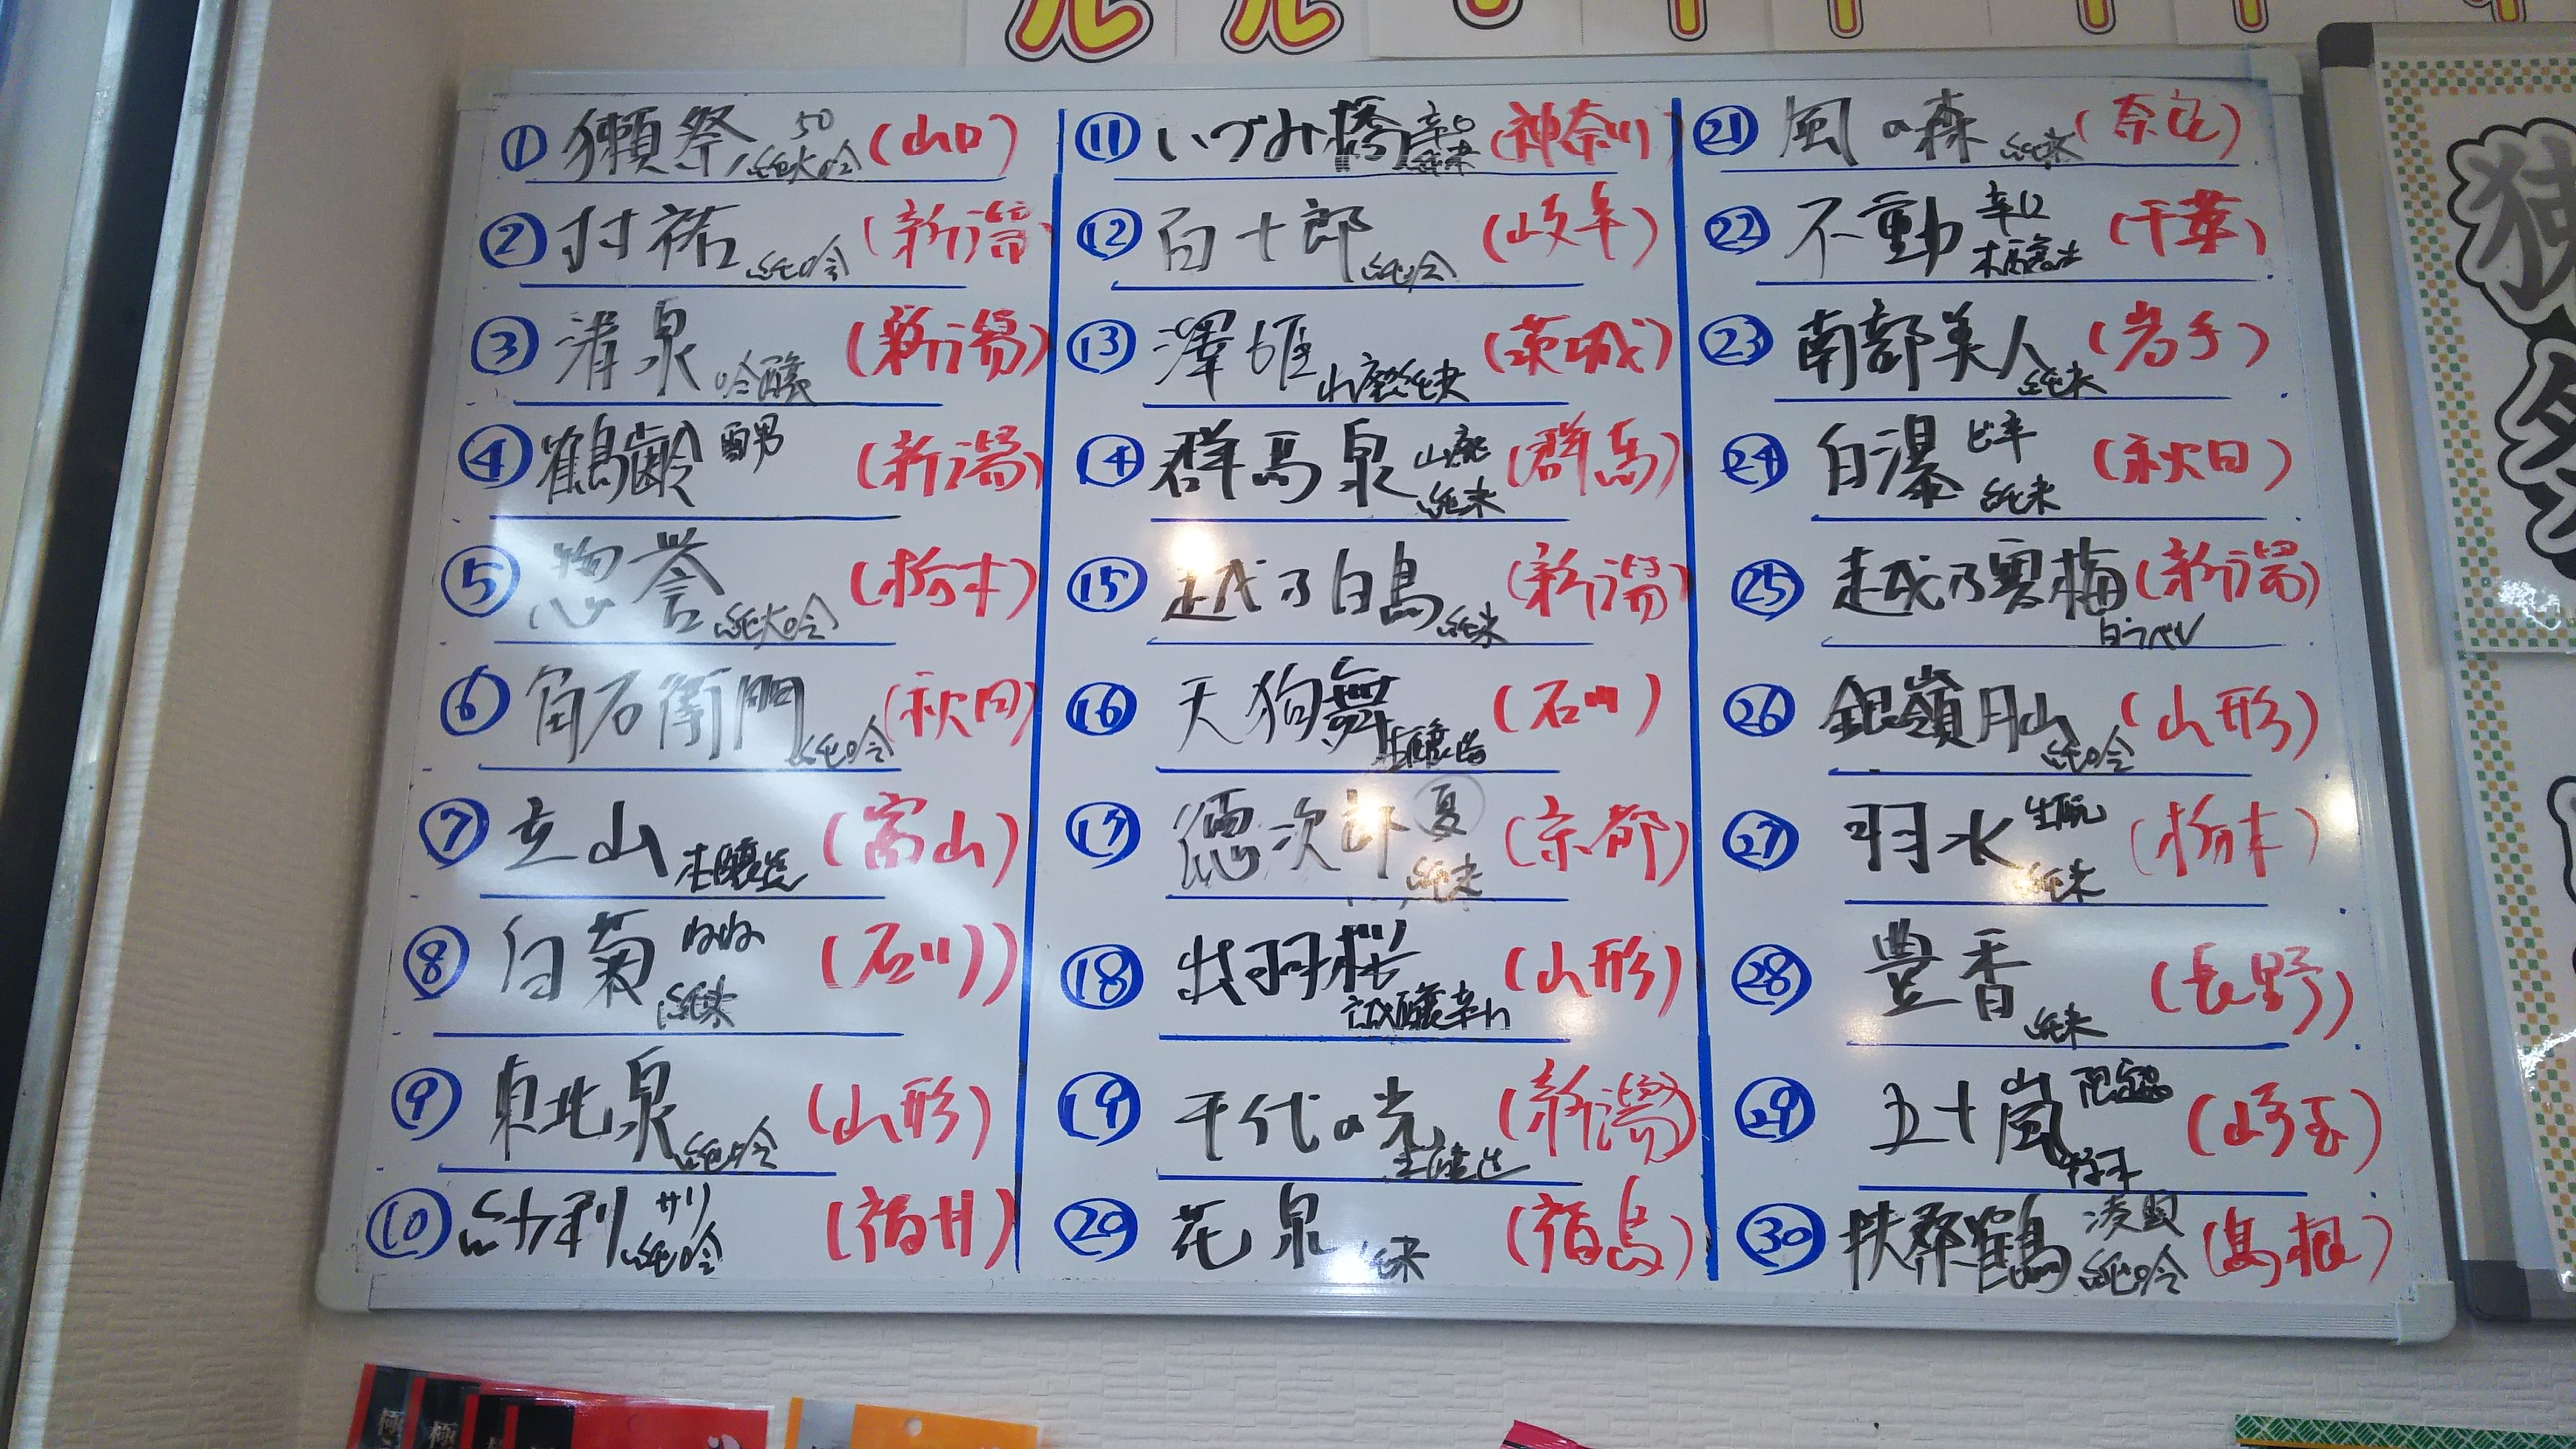 ① 獺祭 50 純大吟 (山口)
② 村祐 純吟 (新潟)
③ 清泉 吟醸 (新潟)
④ 鶴齢 雪男 (新潟)
⑤ 惣誉 純大吟 (栃木)
⑥ 角右衛門 純吟 (秋田)
⑦ 立山 本醸造 (富山)
⑧ 白菊 純米 (石川)
⑨ 東北泉 純吟 (山形)
⑩ 紗利 サリ 純吟 (福井)
⑪ いづみ橋 辛口 純米 (神奈川)
⑫ 百十郎 純吟 (岐阜)
⑬ 澤姫 山廃純米 (茨城)
⑭ 群馬泉 山廃 純米 (群馬)
⑮ 越乃白鳥 純米 (新潟)
⑯ 天狗舞 (石川)
⑰ 徳次郎 夏 純米 (京都)
⑱ 出羽桜 誠醸辛口 (山形)
⑲ 千代の光 (新潟)
⑳ 花泉 純米 (福島)
㉑ 風の森 純米 (奈良)
㉒ 不動 辛口 本醸造 (千葉)
㉓ 南部美人 純米 (岩手)
㉔ 白瀑 ど辛 純米 (秋田)
㉕ 越乃寒梅 白ラベル (新潟)
㉖ 銀嶺月山 純吟 (山形)
㉗ 羽水 生酛 純米 (栃木)
㉘ 豊香 純米 (長野)
㉙ 五十嵐 限定品 (埼玉)
㉚ 扶桑鶴 涼風 純吟 (島根)